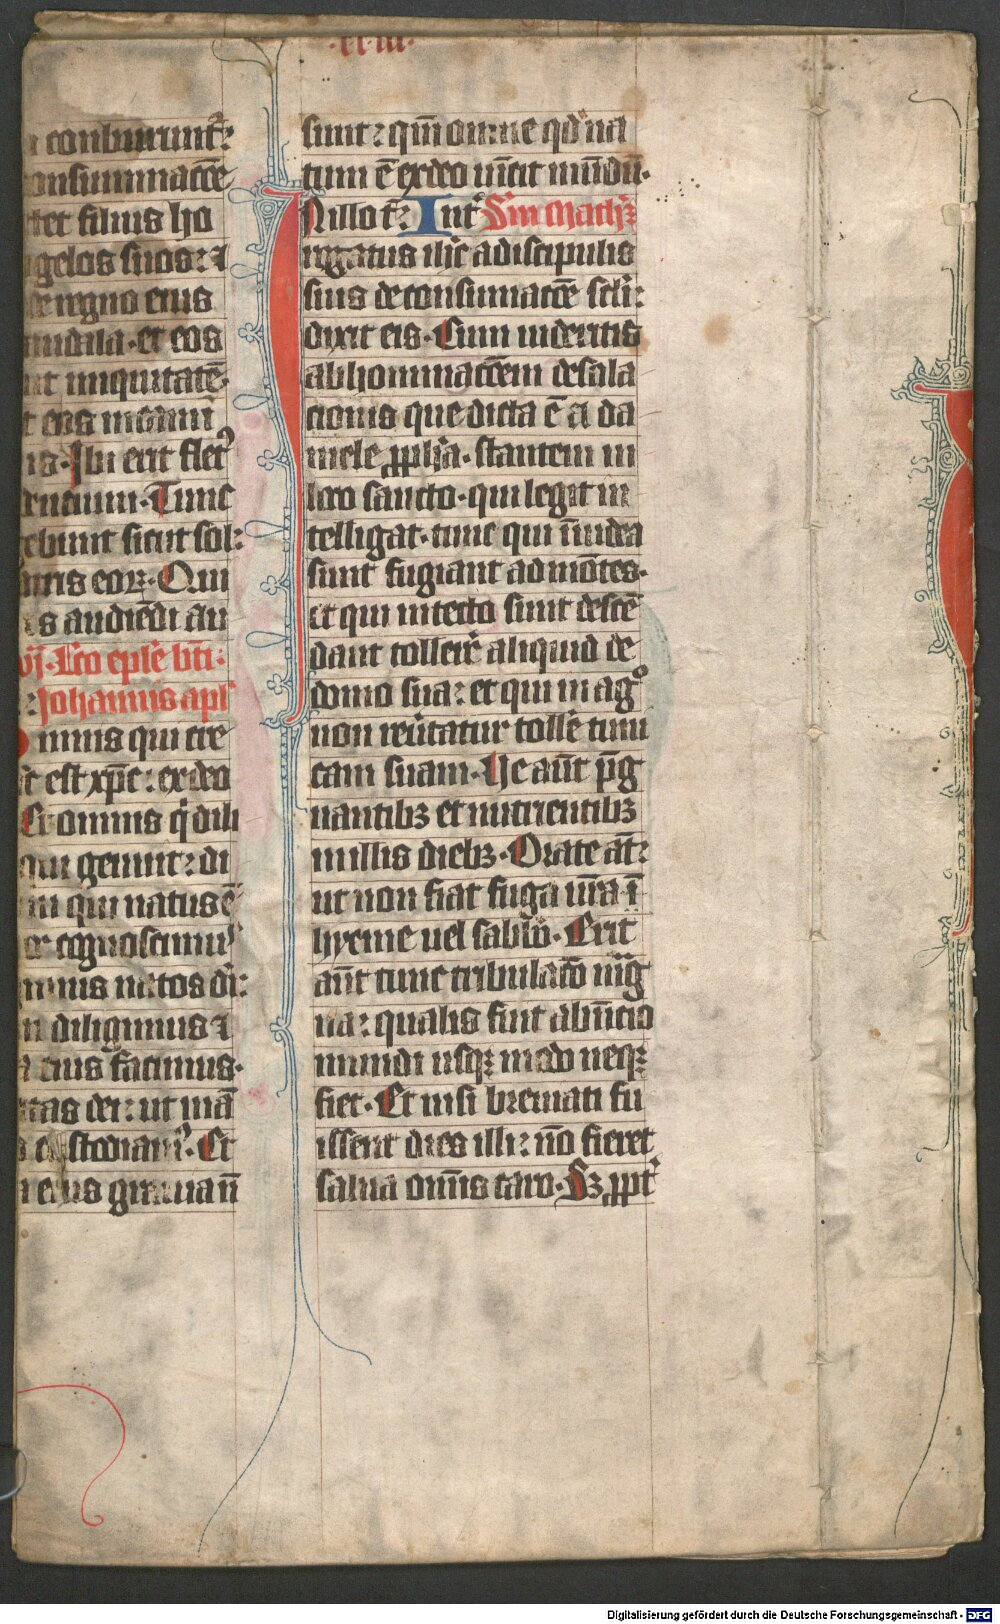 ·xxiii·
conburunt᷑:
onsummacōe
tet filius ho
gelos suos: ⁊
de regno eius
andala· et eos
nt iniquitatē·
t eos in camin̄
is· Ibi erit flet᷒
dentium· Tunc
ebunt sicut sol:
atris eoꝝ· Qui
s audiēdi au
vj· Lc̄o ep̄le bt̄i:
Johannis apl̓
mnis qui cre
t est xp̄c: ex deo
Et omnis q̇ dili
qui genuit: di
m qui natus ē
oc cognoscimꝰ
m natos dī:
m diligimus ⁊
eius faciamus·
itas dei: ut mā
custodiam᷒· Et
eius grauia nō
sunt: qm̄ omne qd̓ na
tum ē ex deo uīcit mūdū·
In illo t̄: Int᷑ S̄m Mathꝫ
rogatus ih̄c a discipulis
suis de consumacōe sclī:
dixit eis· Cum uideritis
abhominacōem desola
cionis que dicta ē a da
niele ꝓpha· stantem in
loco sancto· qui legit in
telligat· tunc qui ī iudea
sunt fugiant ad mōtes·
et qui in tecto sunt descē
dant tollere aliquid de
domo sua: et qui in agͦ
non reūtatur tolle᷑ tuni
cam suam· Ue aūt p̄g
nantibꝫ et nutrientibꝫ
in illis diebꝫ· Orate aūt:
ut non fiat fuga ur̄a ī
hyeme uel sabb̄o· Erit
aūt tunc tribulaco̅ mag
na: qualis fuit ab inicio
mundi usqꝫ modo neqꝫ
fiet· Et nisi breuiati fu
issent dies illi: nō fieret
salua omīs caro· Sꝫ ꝓpt᷑
Digitalisierung gefördert durch die Deutsche Forschungsgemeinschaft - DFG